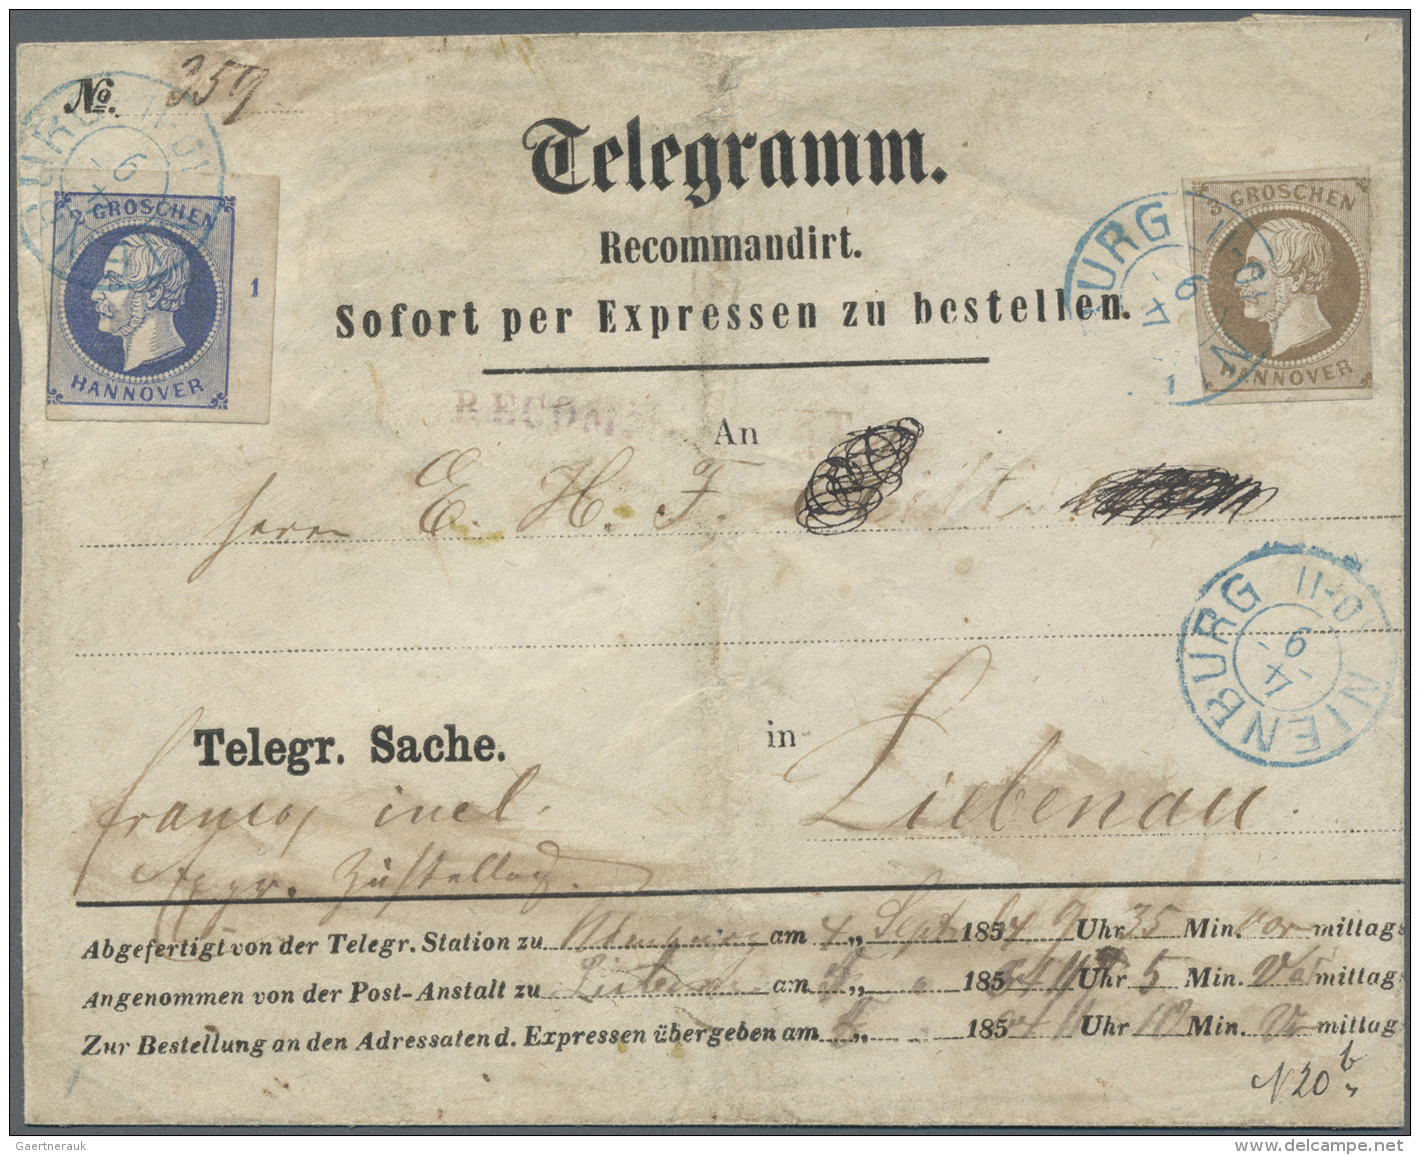 No. 359
Telegramm.
Recommandirt.
Sofort per Expressen zu bestellen.
2 GROSCHEN
HANNOVER
1
3 GROSCHEN
HANNOVER
NIENBURG 11-
6
4
RECOM
An
Herrn E. H. F.
NIENBURG 11-
9
4
Telegr. Sache.
in Liebenau.
franco, incl.
Expr. Zustellung.
Abgefertigt von der Telegr. Station zu Nienburg am 4 „ Sept 1854 64 9 Uhr 35 Min. vor mittags
Angenommen von der Post-Anstalt zu am „ 185 64 11 Uhr 5 Min. Vor mittag
Zur Bestellung an den Adressaten d. Expressen übergeben am „ 185 64 11 Uhr 10 Min. V mittag
N 20 b
Gaertnerauk
delcampe.net